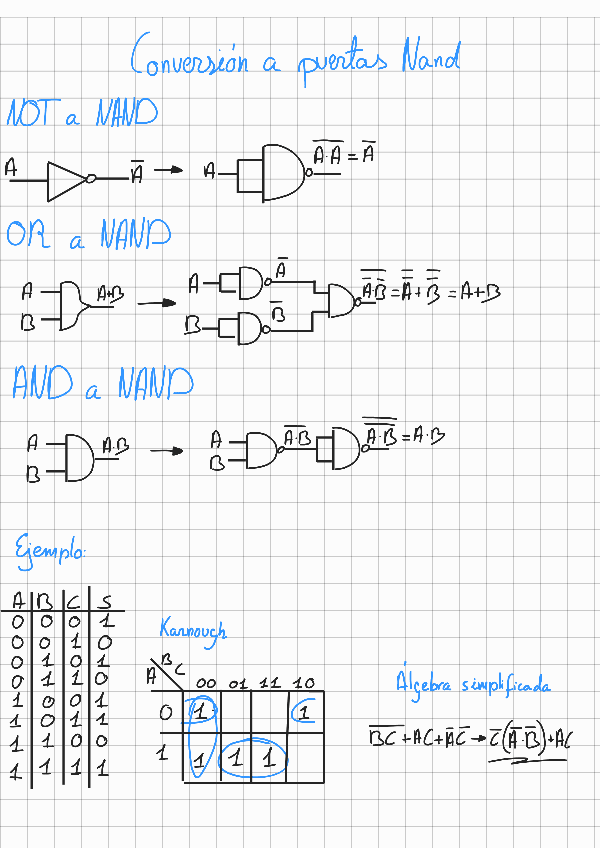 Conversión a puertas Nand
NOT a NAND
A A̅ A A̅·̅A̅ = A̅
OR a NAND
A B A+B A A̅ B B̅ A̿·B̿ = A̿ + B̿ = A+B
AND a NAND
A B A·B A B A̅·̅B̅ A̿·̿B̿ = A·B
Ejemplo:
A B C S
0 0 0 1
0 0 1 0
0 1 0 1
0 1 1 0
1 0 0 1
1 0 1 1
1 1 0 0
1 1 1 1
Karnough
A BC
00 01 11 10
0 1 1
1 1 1 1
Álgebra simplificada
B̅C̅ + AC + A̅C̅ → C̅(A̅·B̅) + AC